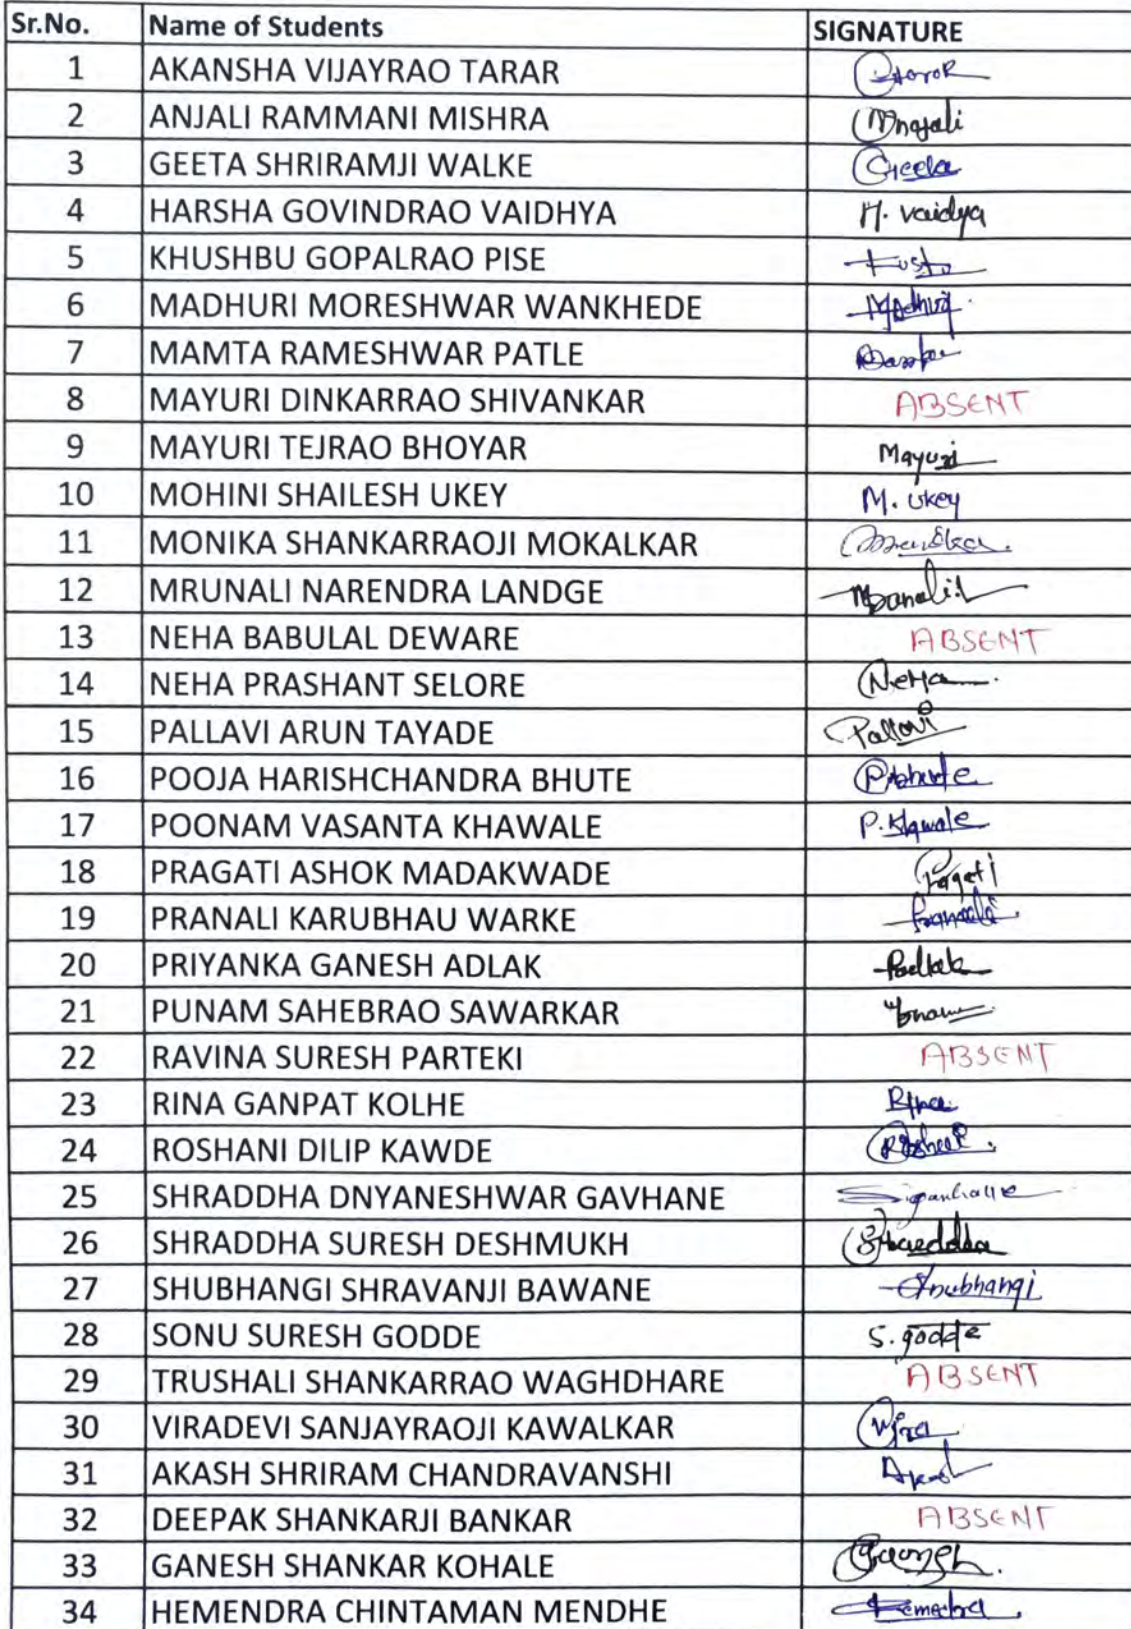 Sr.No. Name of Students SIGNATURE
1 AKANSHA VIJAYRAO TARAR
2 ANJALI RAMMANI MISHRA
3 GEETA SHRIRAMJI WALKE Geeta
4 HARSHA GOVINDRAO VAIDHYA H. vaidya
5 KHUSHBU GOPALRAO PISE
6 MADHURI MORESHWAR WANKHEDE
7 MAMTA RAMESHWAR PATLE
8 MAYURI DINKARRAO SHIVANKAR ABSENT
9 MAYURI TEJRAO BHOYAR Mayuri
10 MOHINI SHAILESH UKEY M. Ukey
11 MONIKA SHANKARRAOJI MOKALKAR
12 MRUNALI NARENDRA LANDGE
13 NEHA BABULAL DEWARE ABSENT
14 NEHA PRASHANT SELORE Neha
15 PALLAVI ARUN TAYADE Pallavi
16 POOJA HARISHCHANDRA BHUTE
17 POONAM VASANTA KHAWALE P. Khawale
18 PRAGATI ASHOK MADAKWADE Pragati
19 PRANALI KARUBHAU WARKE Pranali
20 PRIYANKA GANESH ADLAK Padlak
21 PUNAM SAHEBRAO SAWARKAR
22 RAVINA SURESH PARTEKI ABSENT
23 RINA GANPAT KOLHE Rina
24 ROSHANI DILIP KAWDE
25 SHRADDHA DNYANESHWAR GAVHANE
26 SHRADDHA SURESH DESHMUKH Shraddha
27 SHUBHANGI SHRAVANJI BAWANE Shubhangi
28 SONU SURESH GODDE S. godde
29 TRUSHALI SHANKARRAO WAGHDHARE ABSENT
30 VIRADEVI SANJAYRAOJI KAWALKAR
31 AKASH SHRIRAM CHANDRAVANSHI Akash
32 DEEPAK SHANKARJI BANKAR ABSENT
33 GANESH SHANKAR KOHALE Ganesh
34 HEMENDRA CHINTAMAN MENDHE Hemendra